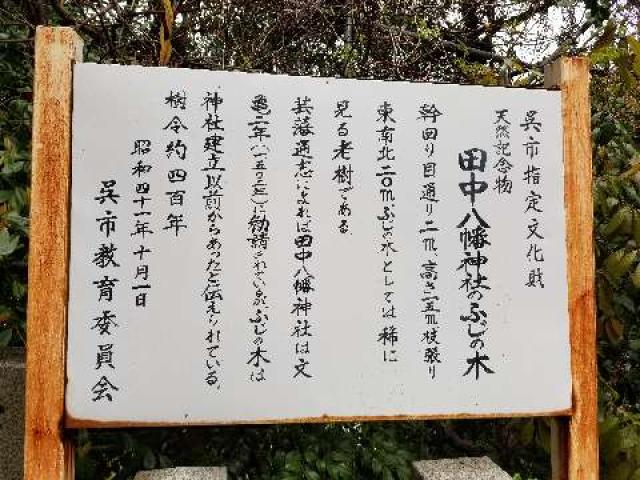 呉市指定文化財
天然記念物
田中八幡神社のふじの木
幹回り目通り二m、高さ一五m枝張り
東南北二〇m、ふじの木としては稀に
見る老樹である。
芸藩通志によれば田中八幡神社は文
亀二年(一五〇二)に勧請されているが、ふじの木は
神社建立以前からあったと伝えられている。
樹令約四百年
昭和四十一年十月一日
呉市教育委員会